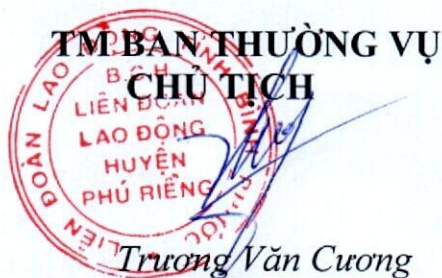 TM.BAN THƯỜNG VỤ
CHỦ TỊCH
B.C.H
LIÊN ĐOÀN
LAO ĐỘNG
HUYỆN
PHÚ RIỀNG
LIÊN ĐOÀN LAO ĐỘNG TỈNH BÌNH PHƯỚC
Trương Văn Cương